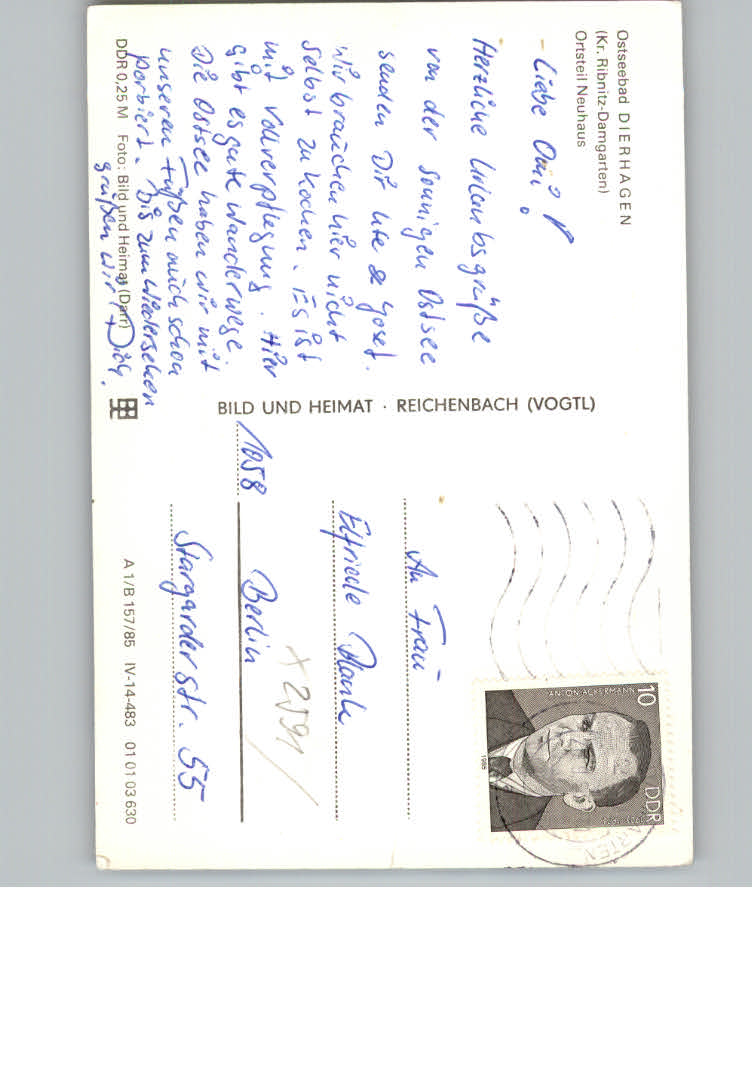 Ostseebad DIERHAGEN
(Kr. Ribnitz-Damgarten)
Ortsteil Neuhaus
Liebe Omi!
Herzliche Urlaubsgrüße
von der sonnigen Ostsee
senden Dir Ute & Josef.
Wir brauchen hier nicht
selbst zu kochen. Es ist
mit Vollverpflegung. Hier
gibt es gute Wanderwege.
Die Ostsee haben wir mit
unseren Füßen auch schon
probiert. Bis zum Wiedersehen
grüßen wir Dich.
DDR 0,25 M Foto: Bild und Heimat (Darr)
BILD UND HEIMAT · REICHENBACH (VOGTL)
10
DDR
ANTON ACKERMANN
1985
An Frau
Elfriede
x 2591/
1058 Berlin
Stargarder Str. 55
A 1/B 157/85 IV-14-483 01 01 03 630